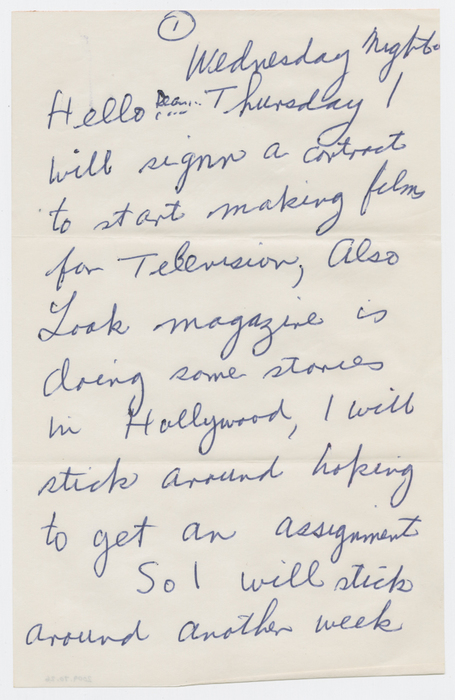 ①
Wednesday Night
Hello Dean... Thursday I
will signn a contract
to start making films
for Television, Also
Look magazine is
doing some stories
in Hollywood, I will
stick around hoking
to get an assignment
So I will stick
around another week